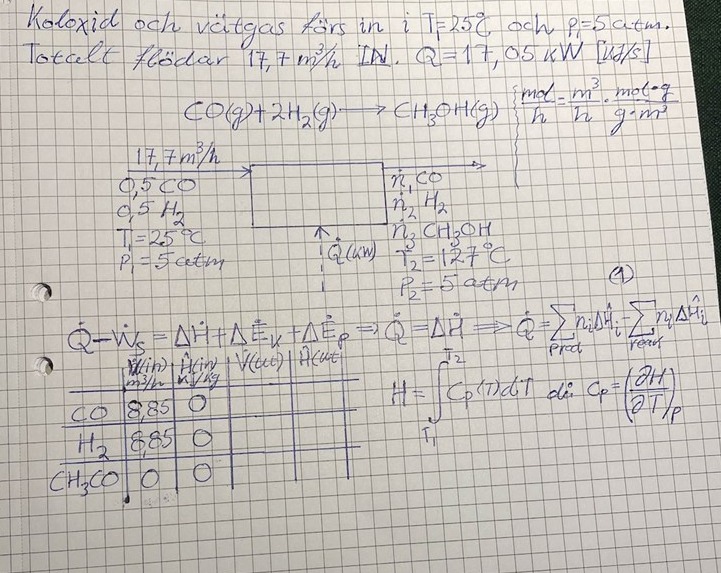 Koloxid och vätgas förs in i T₁=25°C och P₁=5 atm.
Totalt flödar 17,7 m³/h IN. Q̇=17,05 kW [kJ/s]
CO(g)+2H₂(g)⟶CH₃OH(g)
mol/h = m³/h · mol·g/g·m³
17,7 m³/h
0,5 CO
0,5 H₂
T₁=25°C
P₁=5 atm
Q̇(kW)
ṅ₁ CO
ṅ₂ H₂
ṅ₃ CH₃OH
T₂=127°C
P₂=5 atm
①
Q̇-Ẇs=ΔḢ+ΔĖk+ΔĖp ⇒ Q̇=ΔḢ ⟹ Q̇=∑prod nᵢΔĤᵢ-∑reak nᵢΔĤᵢ
V̇(in) m³/h Ĥ(in) kJ/kg V̇(ut) Ĥ(ut)
CO 8,85 0
H₂ 8,85 0
CH₃CO 0 0
H=∫T₁T₂ Cp(T)dT där Cp=(∂H/∂T)P